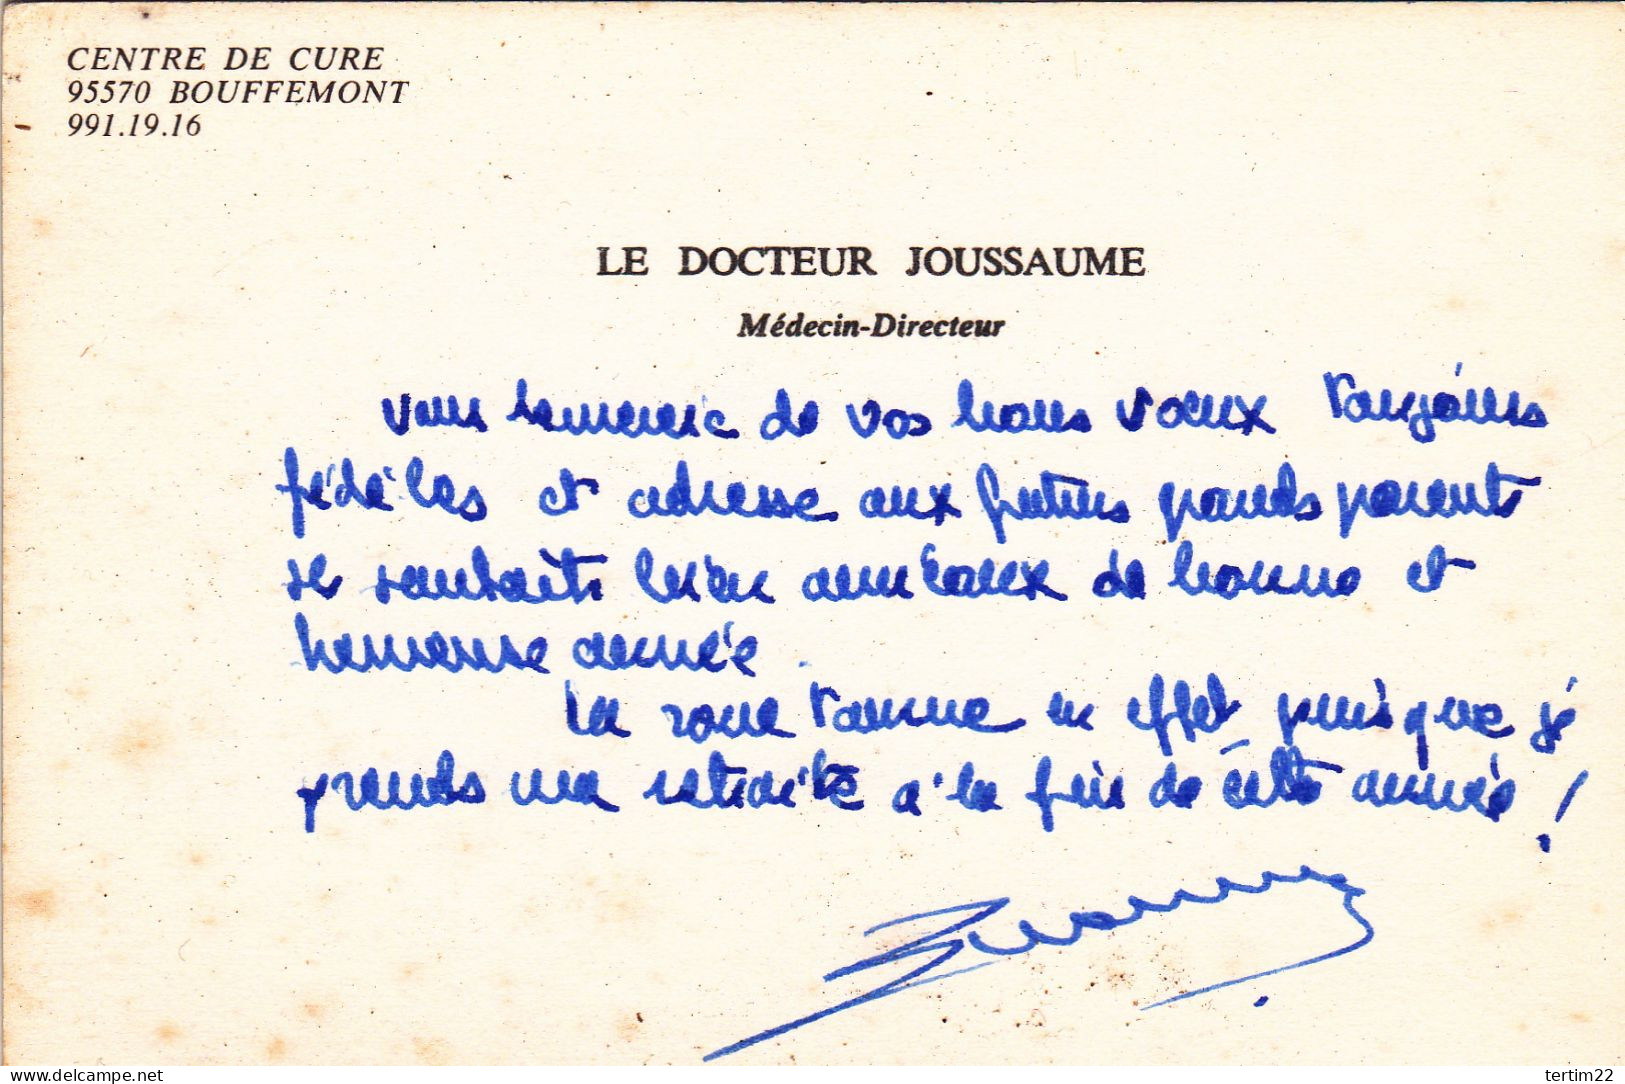 CENTRE DE CURE
95570 BOUFFEMONT
991.19.16
LE DOCTEUR JOUSSAUME
Médecin-Directeur
vous remercie de vos bons voeux toujours
fidèles et adresse aux futurs grands parents
ses souhaits bien amicaux de bonne et
heureuse année.
La roue tourne en effet puisque je
prends ma retraite à la fin de cette année !
delcampe.net
tertim22